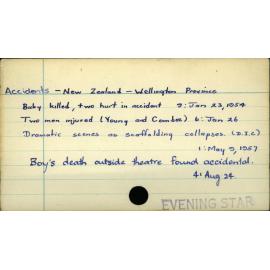 Accidents - New Zealand - Wellington Province
Baby killed, two hurt in accident 9: Jan 23, 1954
Two men injured (Young and Coombes) 6: Jan 26
Dramatic scenes as scaffolding collapses. (D.I.C)
1: May 9, 1957
Boy's death outside theatre found accidental.
4: Aug 24
EVENING STAR